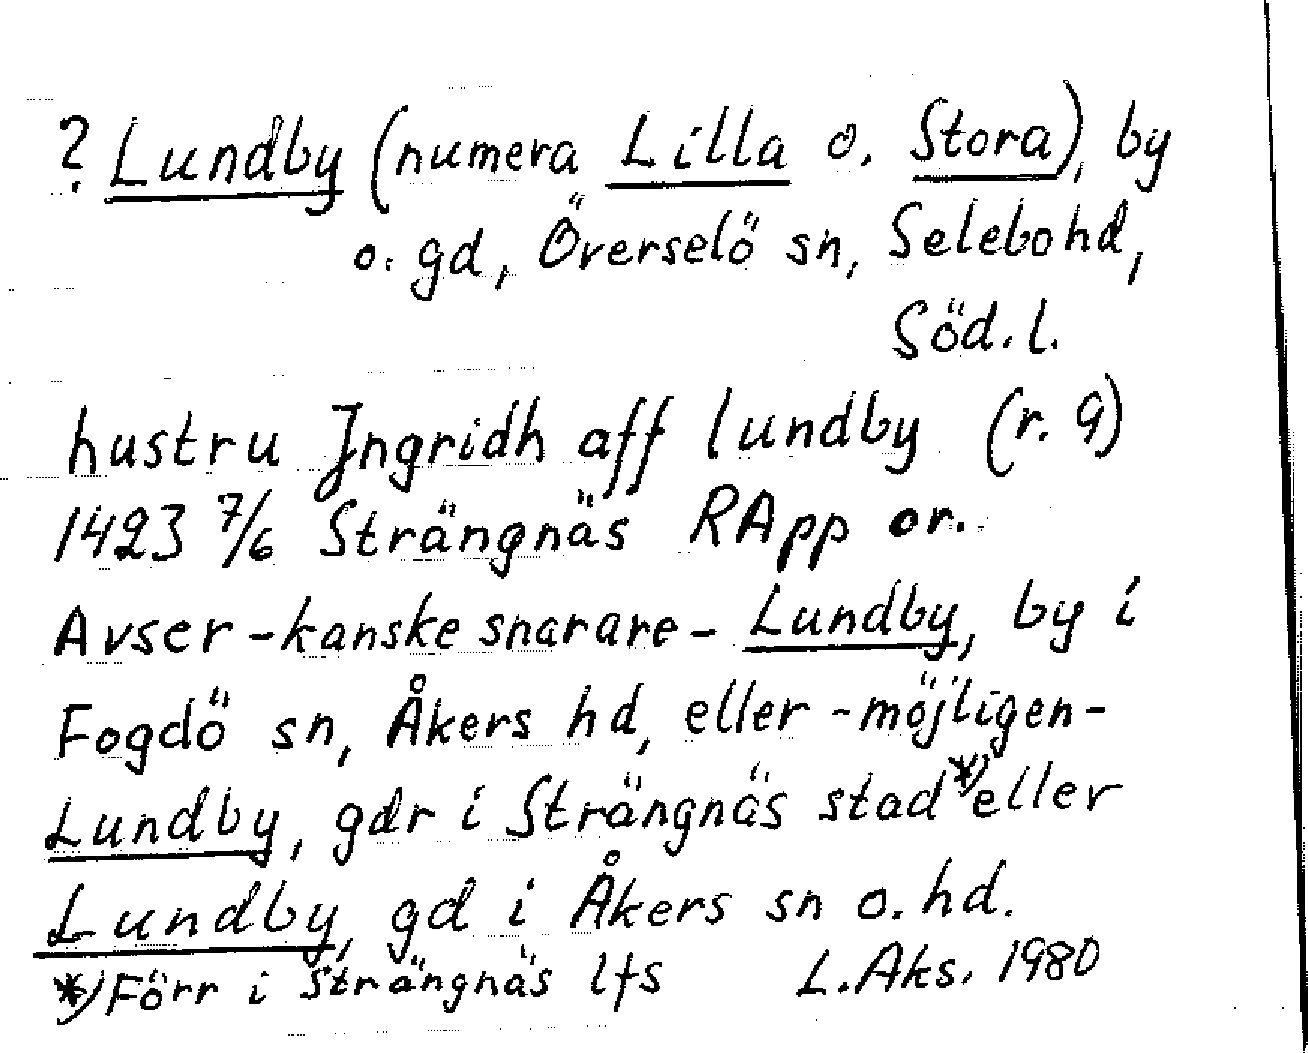 ? Lundby (numera Lilla o. Stora), by
o. gd, Överselö sn, Selebo hd,
Söd. l.
hustru Jngridh aff lundby (r. 9)
1423 7/6 Strängnäs RApp or.
Avser - kanske snarare - Lundby, by i
Fogdö sn, Åkers hd, eller - möjligen -
Lundby, gdr i Strängnäs stad *) eller
Lundby, gd i Åkers sn o. hd.
*) Förr i Strängnäs lfs L. Aks. 1980